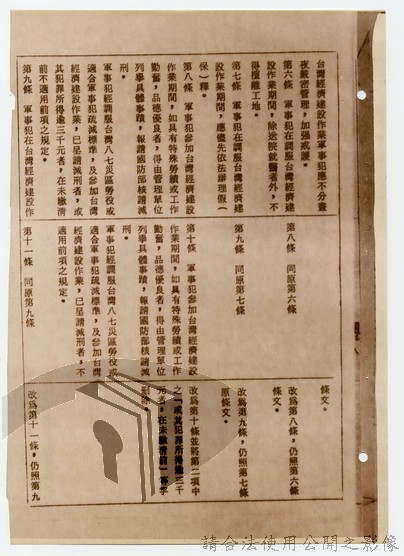 台灣經濟建設作業軍事犯應不分晝
夜嚴密管理，加强戒護。
第六條　軍事犯在調服台灣經濟建
設作業期間，除送院就醫者外，不
得擅離工地。
第七條　軍事犯在調服台灣經濟建
設作業期間，應儘先依法辦理假（
保）釋。
第八條　軍事犯參加台灣經濟建設
作業期間，如具有特殊勞績或工作
勤奮，品德優良者，得由管理單位
列舉具體事蹟，報請國防部核請減
刑。
軍事犯經調服台灣八七災區勞役或
適合軍事犯疏減標準，及參加台灣
經濟建設作業，已呈請減刑者，或
其犯罪所得逾三千元者，在未繳淸
前不適用前項之規定。
第九條　軍事犯在台灣經濟建設作
第八條　同原第六條
第九條　同原第七條
第十條　軍事犯參加台灣經濟建設
作業期間，如具有特殊勞績或工作
勤奮，品德優良者，得由管理單位
列舉具體事蹟，報請國防部核請減
刑。
軍事犯經調服台灣八七災區勞役或
適合軍事犯疏減標準，及參加台灣
經濟建設作業，已呈請減刑者，不
適用前項之規定。
第十一條　同原第九條
條文。
改爲第八條，仍照第六條
條文。
改爲第九條，仍照第七條
原條文。
改爲第十條並將第二項中
之「或其犯罪所得逾三千
元者，在未繳淸前」等字
刪除。
改爲第十一條，仍照第九
請合法使用公開之影像